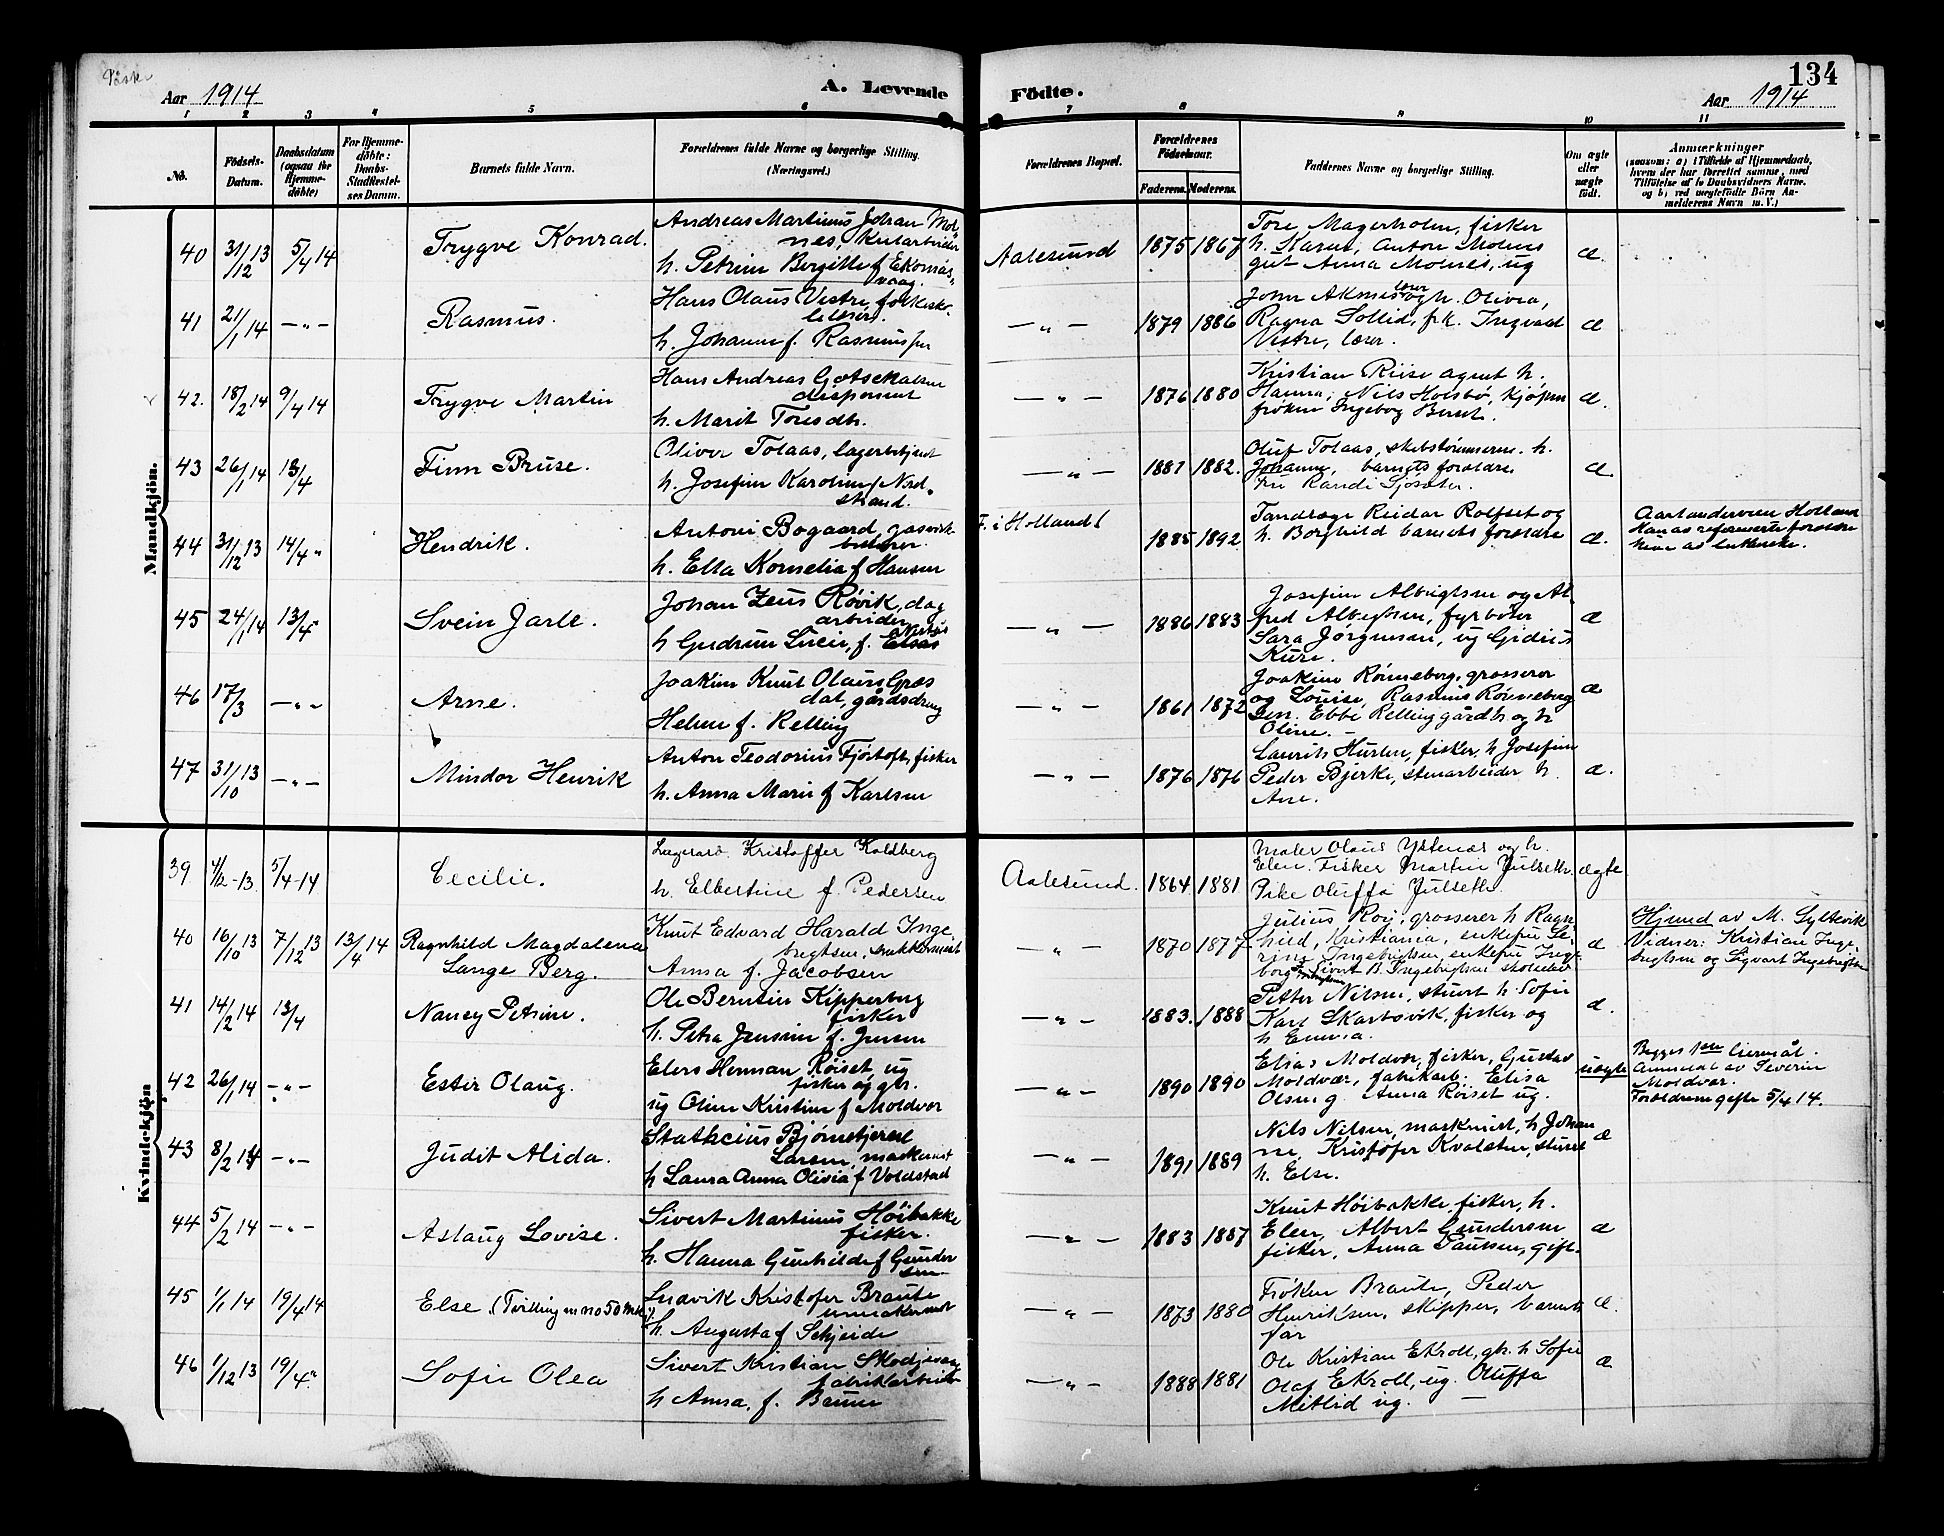 Aar 1914
A. Levende
Födte.
134
Aar 1914
1 2 3 4 5 6 7 8 9 10 11
No.
Födsels-
Datum.
Daabsdatum
(ogsaa for
Hjemme-
döbte)
For Hjemme-
döbte:
Daabs-
Stadfæstel-
ses Datum.
Barnets fulde Navn.
Forældrenes fulde Navne og borgerlige Stilling.
(Næringsvei.)
Forældrenes Bopæl.
Forældrenes
Födselsaar.
Faderens. Moderens.
Faddernes Navne og borgerlige Stilling.
Om ægte
eller
uægte
født.
Anmærkninger
(saasom: a) i Tilfælde af Hjemmedaab,
hvem der har forrettet samme, med
Tilföielse af to Daabsvidners Navne.
og b) ved uægtefödte Börn An-
melderens Navn m. V.)
Mandkjön.
40 31/12 13 5/4 14 Trygve Konrad.
Andreas Martinus Johan Mol-
nes, kularbeider
h. Petrine Bergitte f Ekornås-
vaag.
Aalesund 1875 1867
Tore Magerholm, fisker
h. Karen, Anton Molnes
gut Anna Molnes, ug
æ.
41 21/1 14 —„— Rasmus.
Hans Olaus Vestre, folkesko-
lelærer.
h. Johanne f. Rasmussen
—„— 1879 1886
John Aknes lærer og h. Olivia,
Ragna Sollid, frk. Ingvald
Vestre, lærer.
æ
42. 18/2 14 9/4 14 Trygve Martin
Hans Andreas Gotschalsen
disponent
h. Marit Toresdtr.
—„— 1876 1880
Kristian Riise agent h.
Hanna, Nils Holsbø, kjøpm
frøken Ingebog Bernt.
æ.
43 26/1 14 13/4 Finn Bruse.
Oliver Tolaas, lagerbetjent
h. Josefine Karoline f Nord-
strand.
—„— 1881 1882.
Oluf Tolaas, skibstømmerm. h.
Johanne, barnets foreldre
Fru Randi Sjøseter.
æ.
44 31/12 13 14/4 „ Hendrik.
Antoni Bogaard gasverk-
h. Ella Kornelia f Hansen
F. i Holland 1885 1892
Tandlæge Reidar Rolfset og
h. Borghild barnets foreldre
æ.
Aarlanderveen Holland
Han av reformerte foreldre
hun av lutherske.
45 24/1 14 13/4 „ Svein Jarle.
Johan Zeus Røvik, dag
arbeider
h Gudrun Lucie, f.
—„— 1886 1883
Josefine Albrigtsen og Al-
fred Albrigtsen, fyrbøter
Sara Jørgensen, ug Gidius
Kure.
æ
46 17/3 —„— Arne.
Joakim Knut Olaus Græs
dal, gårdsdreng
Helene f. Relling
—„— 1861 1872
Joakim Rønneberg, grosserer
og Louise, Rasmus Rønneberg
sen. Ebbe Relling gårdb og h
Oline. —
æ
47 31/10 13 —„— Mindor Henrik
Anton Teodorius Fjørtoft, fisker
h. Anna Marie f Karlsen
—„— 1876 1876
Laurits Hurlen, fisker, h Josefine
Peder Bjerke, stenarbeider h.
Ane.
æ.
Kvindekjön
39 4/12-13. 5/4-14 Cecilie.
Lagerarb. Kristoffer Koldberg
h. Elbertine f. Pedersen
Aalesund. 1864 1881
Maler Olaus Ystenæs og h.
Elen. Fisker Martin Julseth.
Pike Oluffa Julseth.
ægte
40 16/10 13 7/12 13 13/4 14 Ragnhild Magdalena
Lange Berg.
Knut Edvard Harald Inge
brigtsen,
Anna f. Jacobsen
—„— 1870 1877
Julius Roy, grosserer h Ragn
hild, Kristiania, enkefru Se-
rine Ingebrigtsen, enkefru Inge-
borg Sivert B. Ingebrigtsen
æ
Hjemd av M. Syltevik
Vidner: Kristian Inge-
brigtsen og Sigvart Ingebrigtsen
41 14/2 14 13/4 Nancy Petrine.
Ole Berntin Kipperberg
fisker
h. Petra Jensine f. Jensen
—„— 1883. 1888
Petter Nilsen, stuert h Sofie
Karl Skarbøvik, fisker og
h Emma.
æ.
42 26/1 14 —„— Ester Olaug.
Elers Herman Røiset, ug
fisker og gbr.
ug Oline Kristine f Moldvær
—„— 1890 1890
Elias Moldvær, fisker, Gustav
Moldvær, fabrikarb. Elisa
Olsen g. Anna Røiset ug.
uægte
Begges 1ste leiermål.
Anmeldt av Severin
Moldvær.
Foreldrene gifte 5/4 14.
43 8/2 14 —„— Judit Alida.
Statheius Bjørnstjerne
Larsen, maskinist
h Laura Anna Olivia f Voldstad
—„— 1891 1889
Nils Nilsen, maskinist, h Johan
ne, Kristofer Kvalsten, stuert
h. Else.
æ
44 5/2 14 —„— Aslaug Lovise.
Sivert Martinus Høibakke
fisker.
h. Hanna Gunhilde f Gunder
sen
—„— 1883 1887
Knut Høibakke, fisker, h.
Elen, Albert Gundersen
fisker, Anna Paulsen, gift.
æ
45 1/1 14 19/4 14 Else (Tvilling m no 50 Mk.)
Ludvik Kristofer Braute
urmakermest
h. Augusta f Schjeide
—„— 1873 1880
Frøken Braute, Peder
Henriksen, skipper, barnets
far
æ.
46 1/12 13 19/4 „ Sofie Olea
Sivert Kristian Skodjevaag
fabrikarbeider
h Anna, f. Baune
—„— 1888 1881
Ole Kristian Ekroll, gbr. h Sofie
Olaf Ekroll, ug. Oluffa
Mitlid ug. —
æ